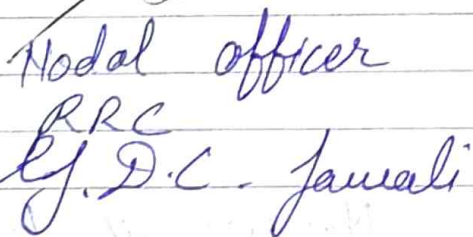 Nodal officer
RRC
G.D.C. Jawali